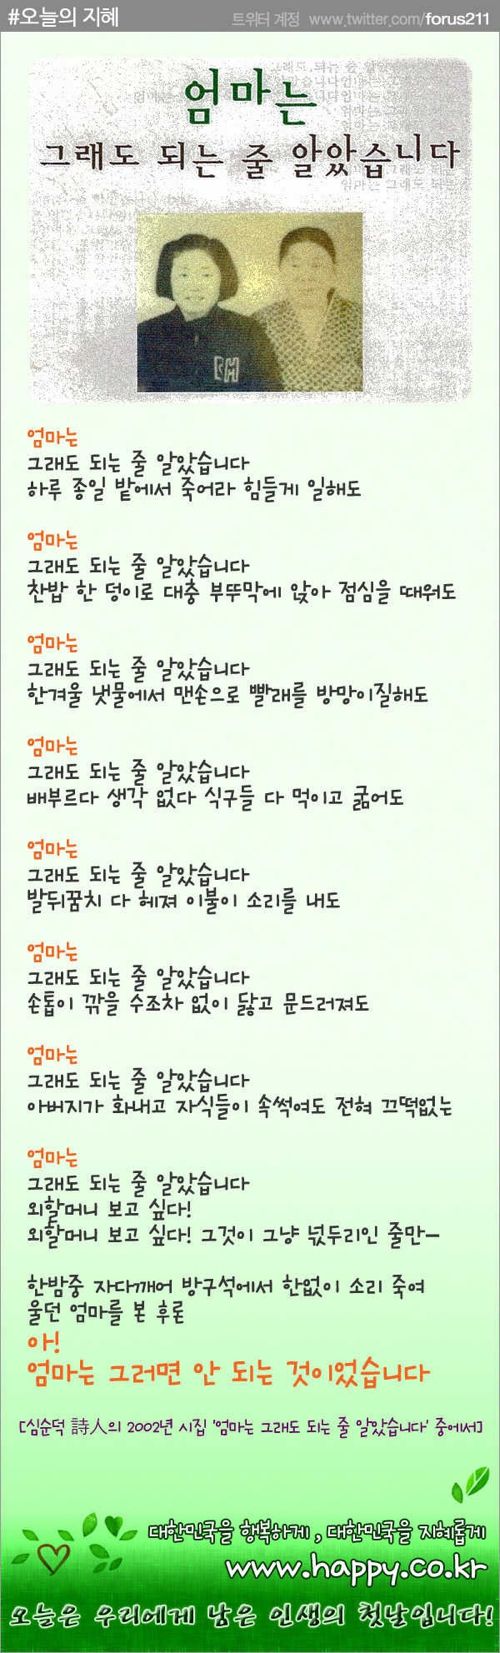 #오늘의 지혜
트위터 계정 www.twitter.com/forus211
엄마는
그래도 되는 줄 알았습니다
엄마는
그래도 되는 줄 알았습니다
하루 종일 밭에서 죽어라 힘들게 일해도
엄마는
그래도 되는 줄 알았습니다
찬밥 한 덩이로 대충 부뚜막에 앉아 점심을 때워도
엄마는
그래도 되는 줄 알았습니다
한겨울 냇물에서 맨손으로 빨래를 방망이질해도
엄마는
그래도 되는 줄 알았습니다
배부르다 생각 없다 식구들 다 먹이고 굶어도
엄마는
그래도 되는 줄 알았습니다
발뒤꿈치 다 헤져 이불이 소리를 내도
엄마는
그래도 되는 줄 알았습니다
손톱이 깎을 수조차 없이 닳고 문드러져도
엄마는
그래도 되는 줄 알았습니다
아버지가 화내고 자식들이 속썩여도 전혀 끄떡없는
엄마는
그래도 되는 줄 알았습니다
외할머니 보고 싶다!
외할머니 보고 싶다! 그것이 그냥 넋두리인 줄만-
한밤중 자다깨어 방구석에서 한없이 소리 죽여
울던 엄마를 본 후론
아!
엄마는 그러면 안 되는 것이었습니다
[심순덕 詩人의 2002년 시집 '엄마는 그래도 되는 줄 알았습니다' 중에서]
대한민국을 행복하게, 대한민국을 지혜롭게
www.happy.co.kr
오늘은 우리에게 남은 인생의 첫날입니다!